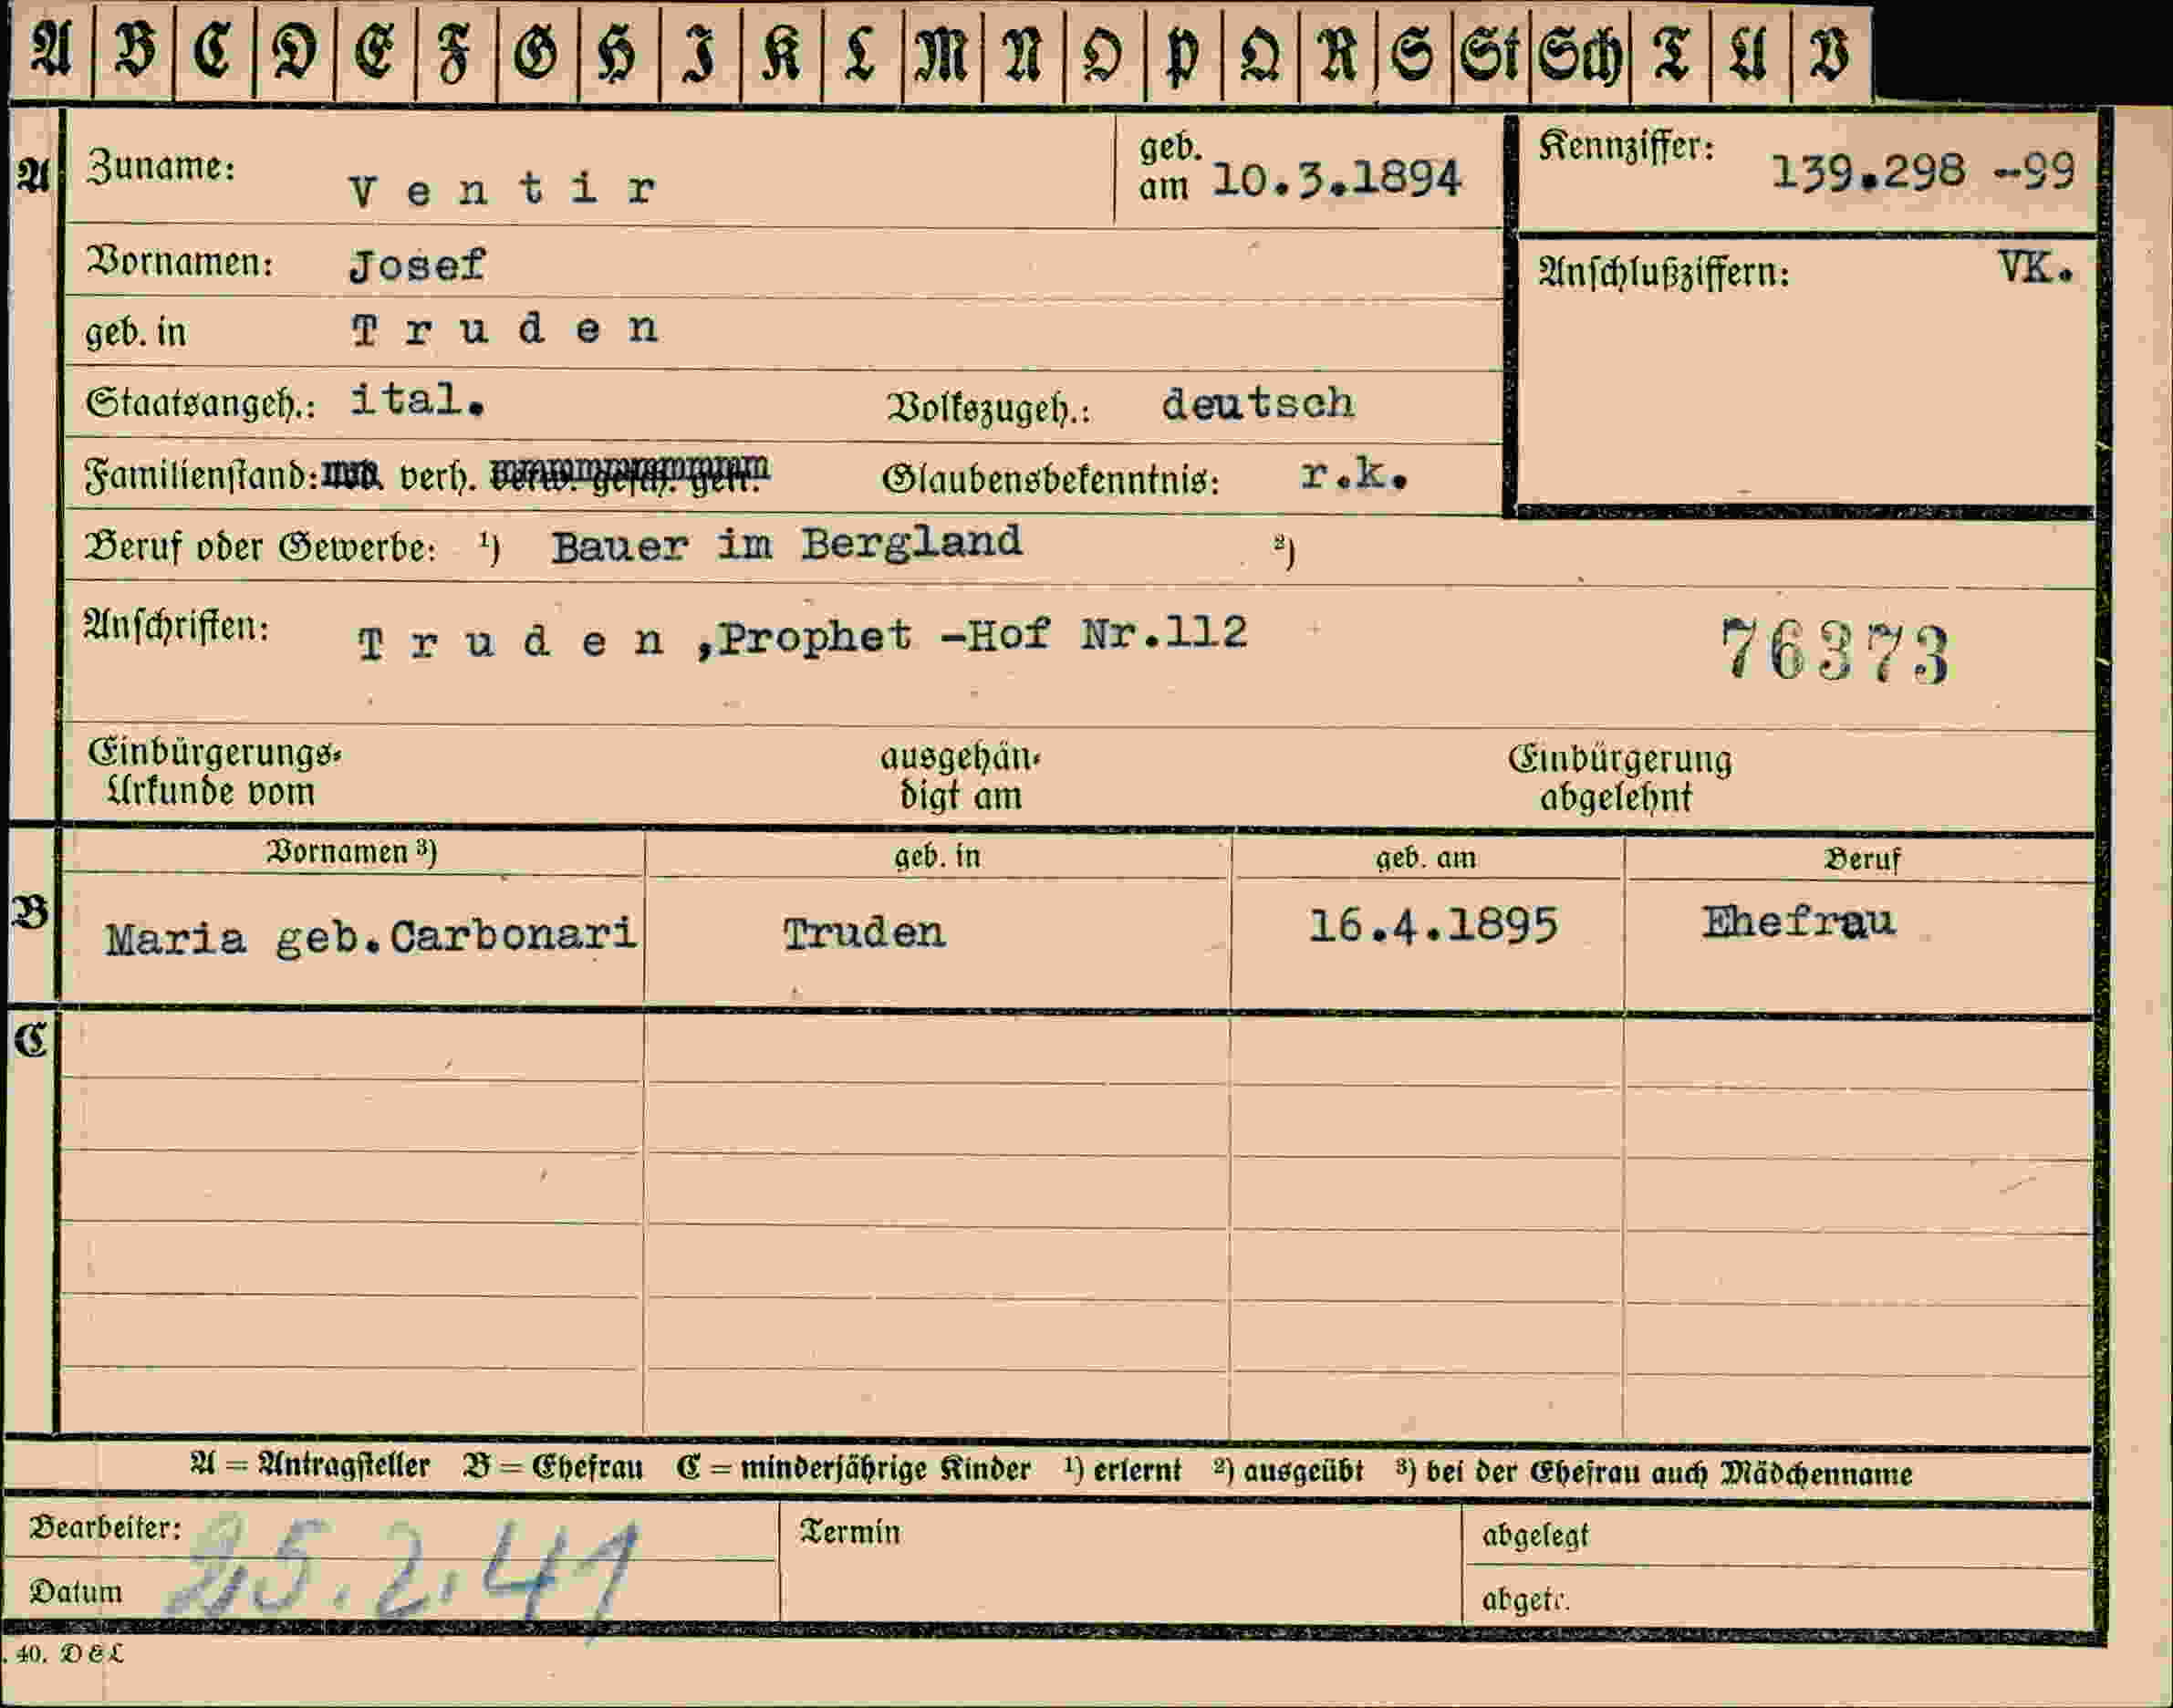 A B C D E F G H I K L M N O P Q R S St Sch T U V
A Zuname: Ventir geb. am 10.3.1894 Kennziffer: 139.298 -99
Vornamen: Josef Anschlußziffern: VK.
geb. in Truden
Staatsangeh.: ital. Volkszugeh.: deutsch
Familienstand: verh. Glaubensbekenntnis: r.k.
Beruf oder Gewerbe: ¹) Bauer im Bergland ²)
Anschriften: Truden ,Prophet -Hof Nr.112 76373
Einbürgerungs- ausgehän- Einbürgerung
Urkunde vom digt am abgelehnt
Vornamen ³) geb. in geb. am Beruf
B Maria geb.Carbonari Truden 16.4.1895 Ehefrau
C
A = Antragsteller B = Ehefrau C = minderjährige Kinder ¹) erlernt ²) ausgeübt ³) bei der Ehefrau auch Mädchenname
Bearbeiter: Termin abgelegt
Datum 25.2.41 abgetr.
. 40. D & L